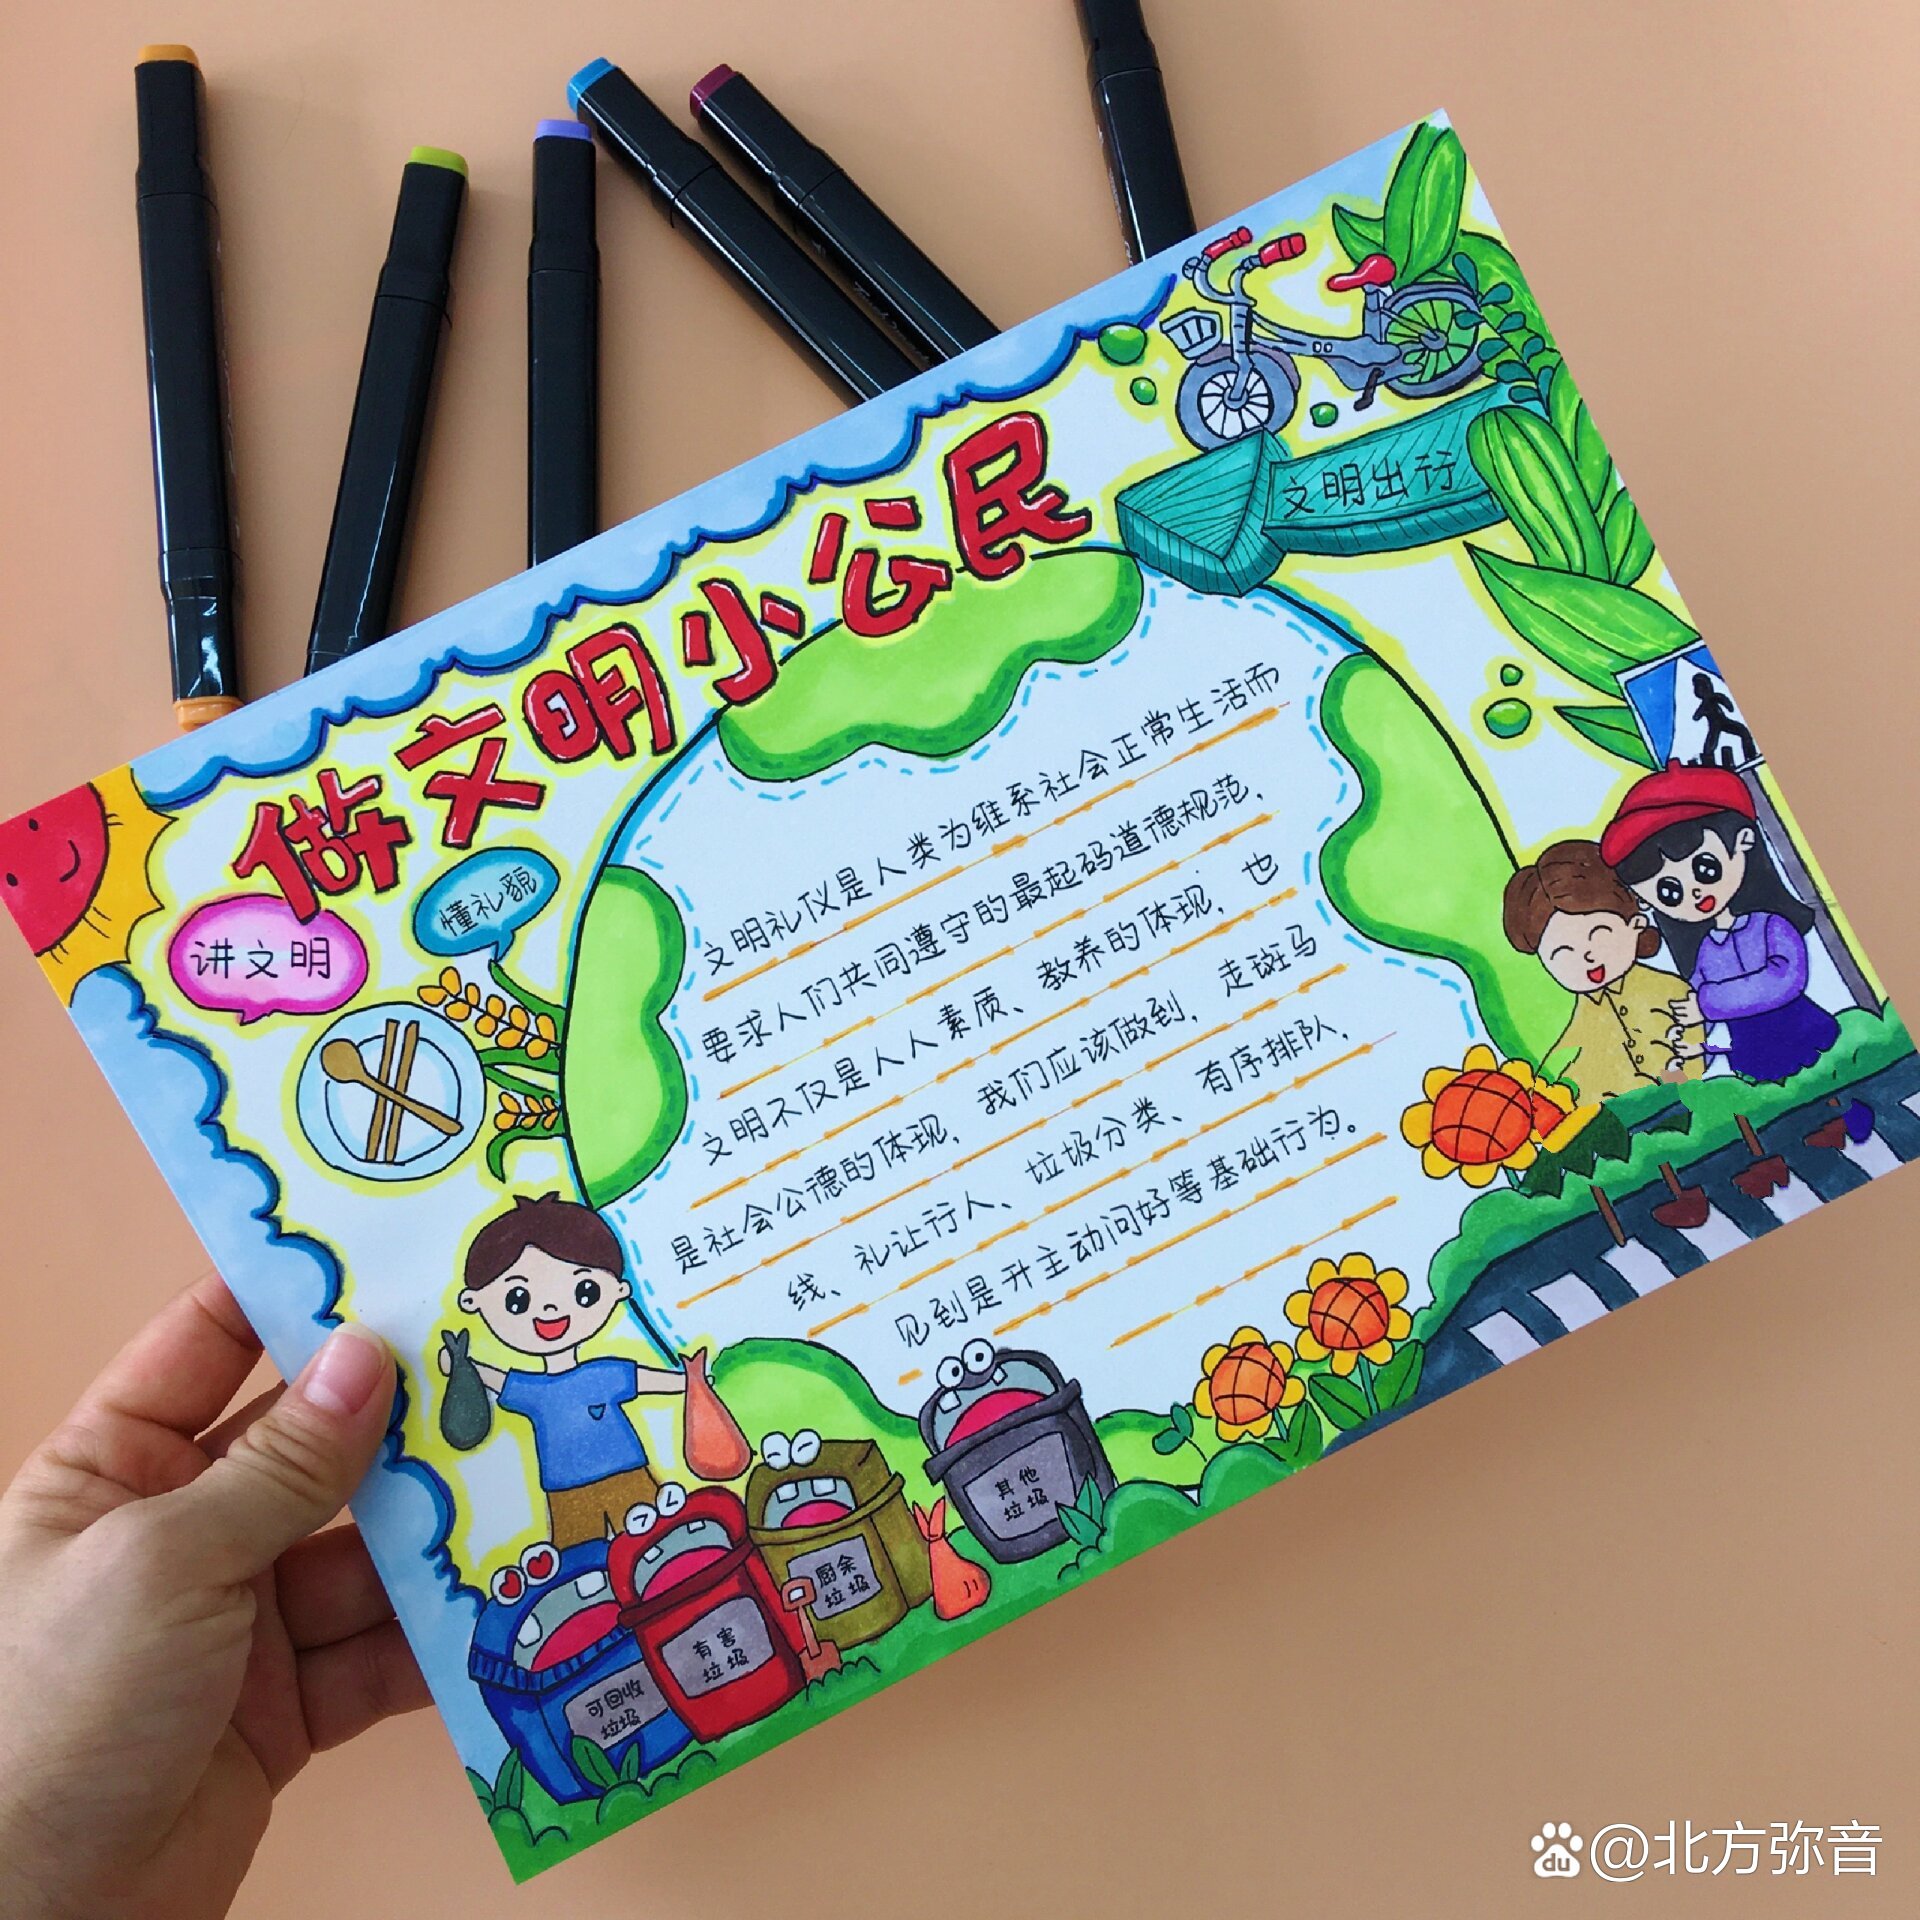 做文明小公民
文明出行
讲文明
懂礼貌
文明礼仪是人类为维系社会正常生活而
要求人们共同遵守的最起码道德规范,
文明不仅是人人素质、教养的体现,也
是社会公德的体现,我们应该做到,走斑马
线、礼让行人、垃圾分类、有序排队,
见到是升主动问好等基础行为。
其他
垃圾
厨余
垃圾
有害
垃圾
可回收
垃圾
du @北方弥音